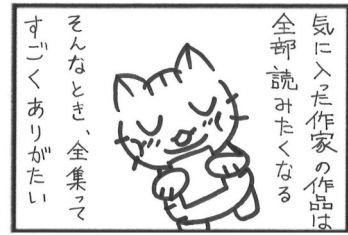 気に入った作家の作品は
全部読みたくなる
そんなとき、全集って
すごくありがたい